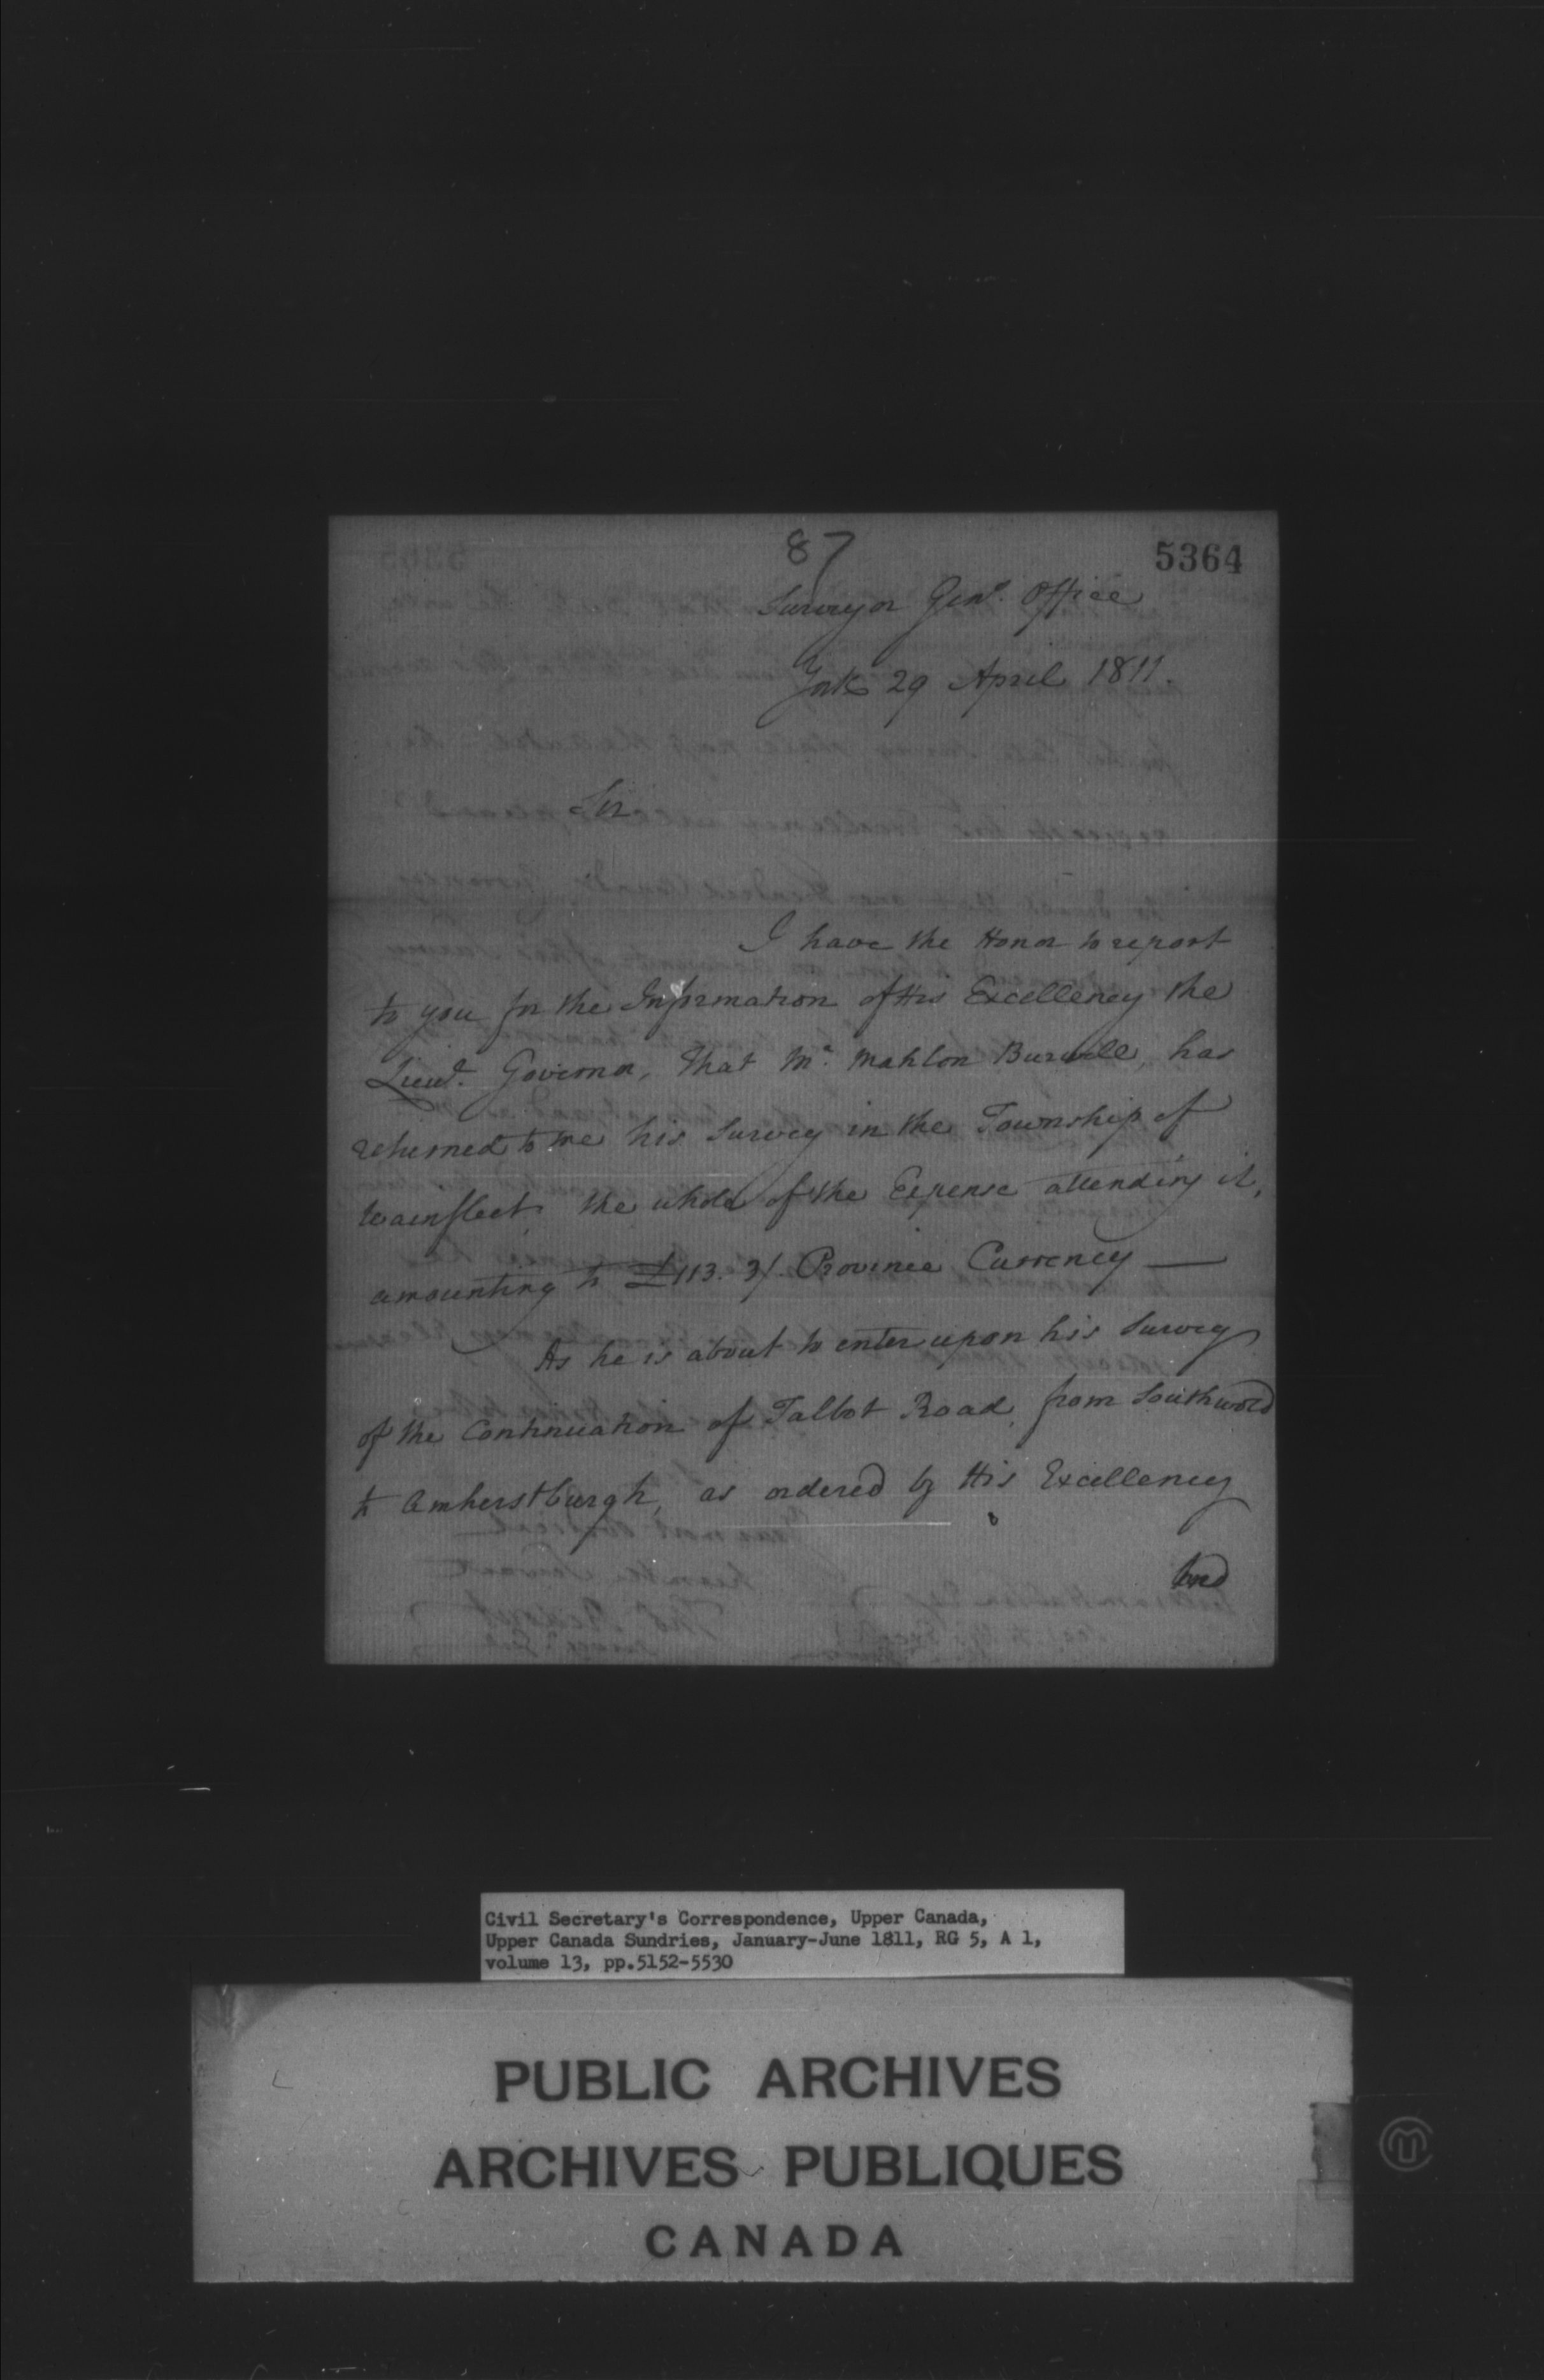 87
5364
Surveyor Genl. Office
York 29 April 1811.
Sir
I have the Honor to report
to you for the Information of His Excellency the
Lieut. Governor, that Mr. Mahlon Burwell, has
returned to me his Survey in the Township of
Wainfleet. the whole of the Expense attending it,
amounting to £113. 3/. Province Currency —
As he is about to enter upon his Survey
of the Continuation of Talbot Road, from Southwold
to Amherstburgh, as ordered by His Excellency
and
Civil Secretary's Correspondence, Upper Canada,
Upper Canada Sundries, January-June 1811, RG 5, A 1,
volume 13, pp.5152-5530
PUBLIC ARCHIVES
ARCHIVES PUBLIQUES
CANADA